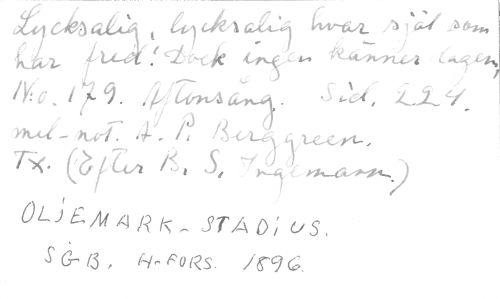 Lycksalig, lycksalig hvar själ som
har fred! Dock ingen känner dagen,
No. 179. Aftonsång. Sid. 224.
mel-not. A. P. Berggreen.
TX. (Efter B. S. Ingemann.)
OLJEMARK-STADIUS.
SGB. H-FORS. 1896.